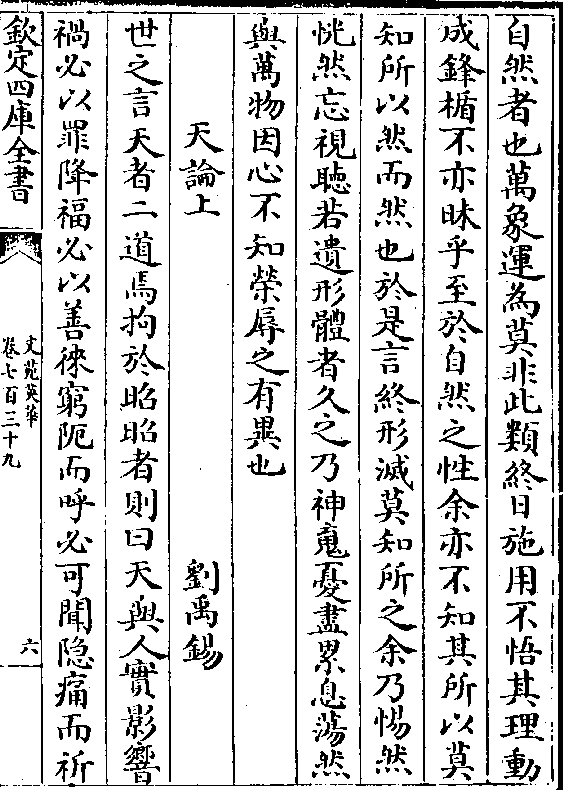 自然者也萬象運為莫非此類終日施用不悟其理動
成鋒楯不亦昧乎至於自然之性余亦不知其所以莫
知所以然而然也於是言終形滅莫知所之余乃惕然
恍然忘視聽若遺形體者久之乃神䰟憂盡累息蕩然
與萬物因心不知榮辱之有異也
天論上　劉禹錫
世之言天者二道焉拘於昭昭者則曰天與人實影響
禍必以罪降福必以善徠窮阨而呼必可聞隐痛而祈
欽定四庫全書
文苑英華
卷七百三十九
六